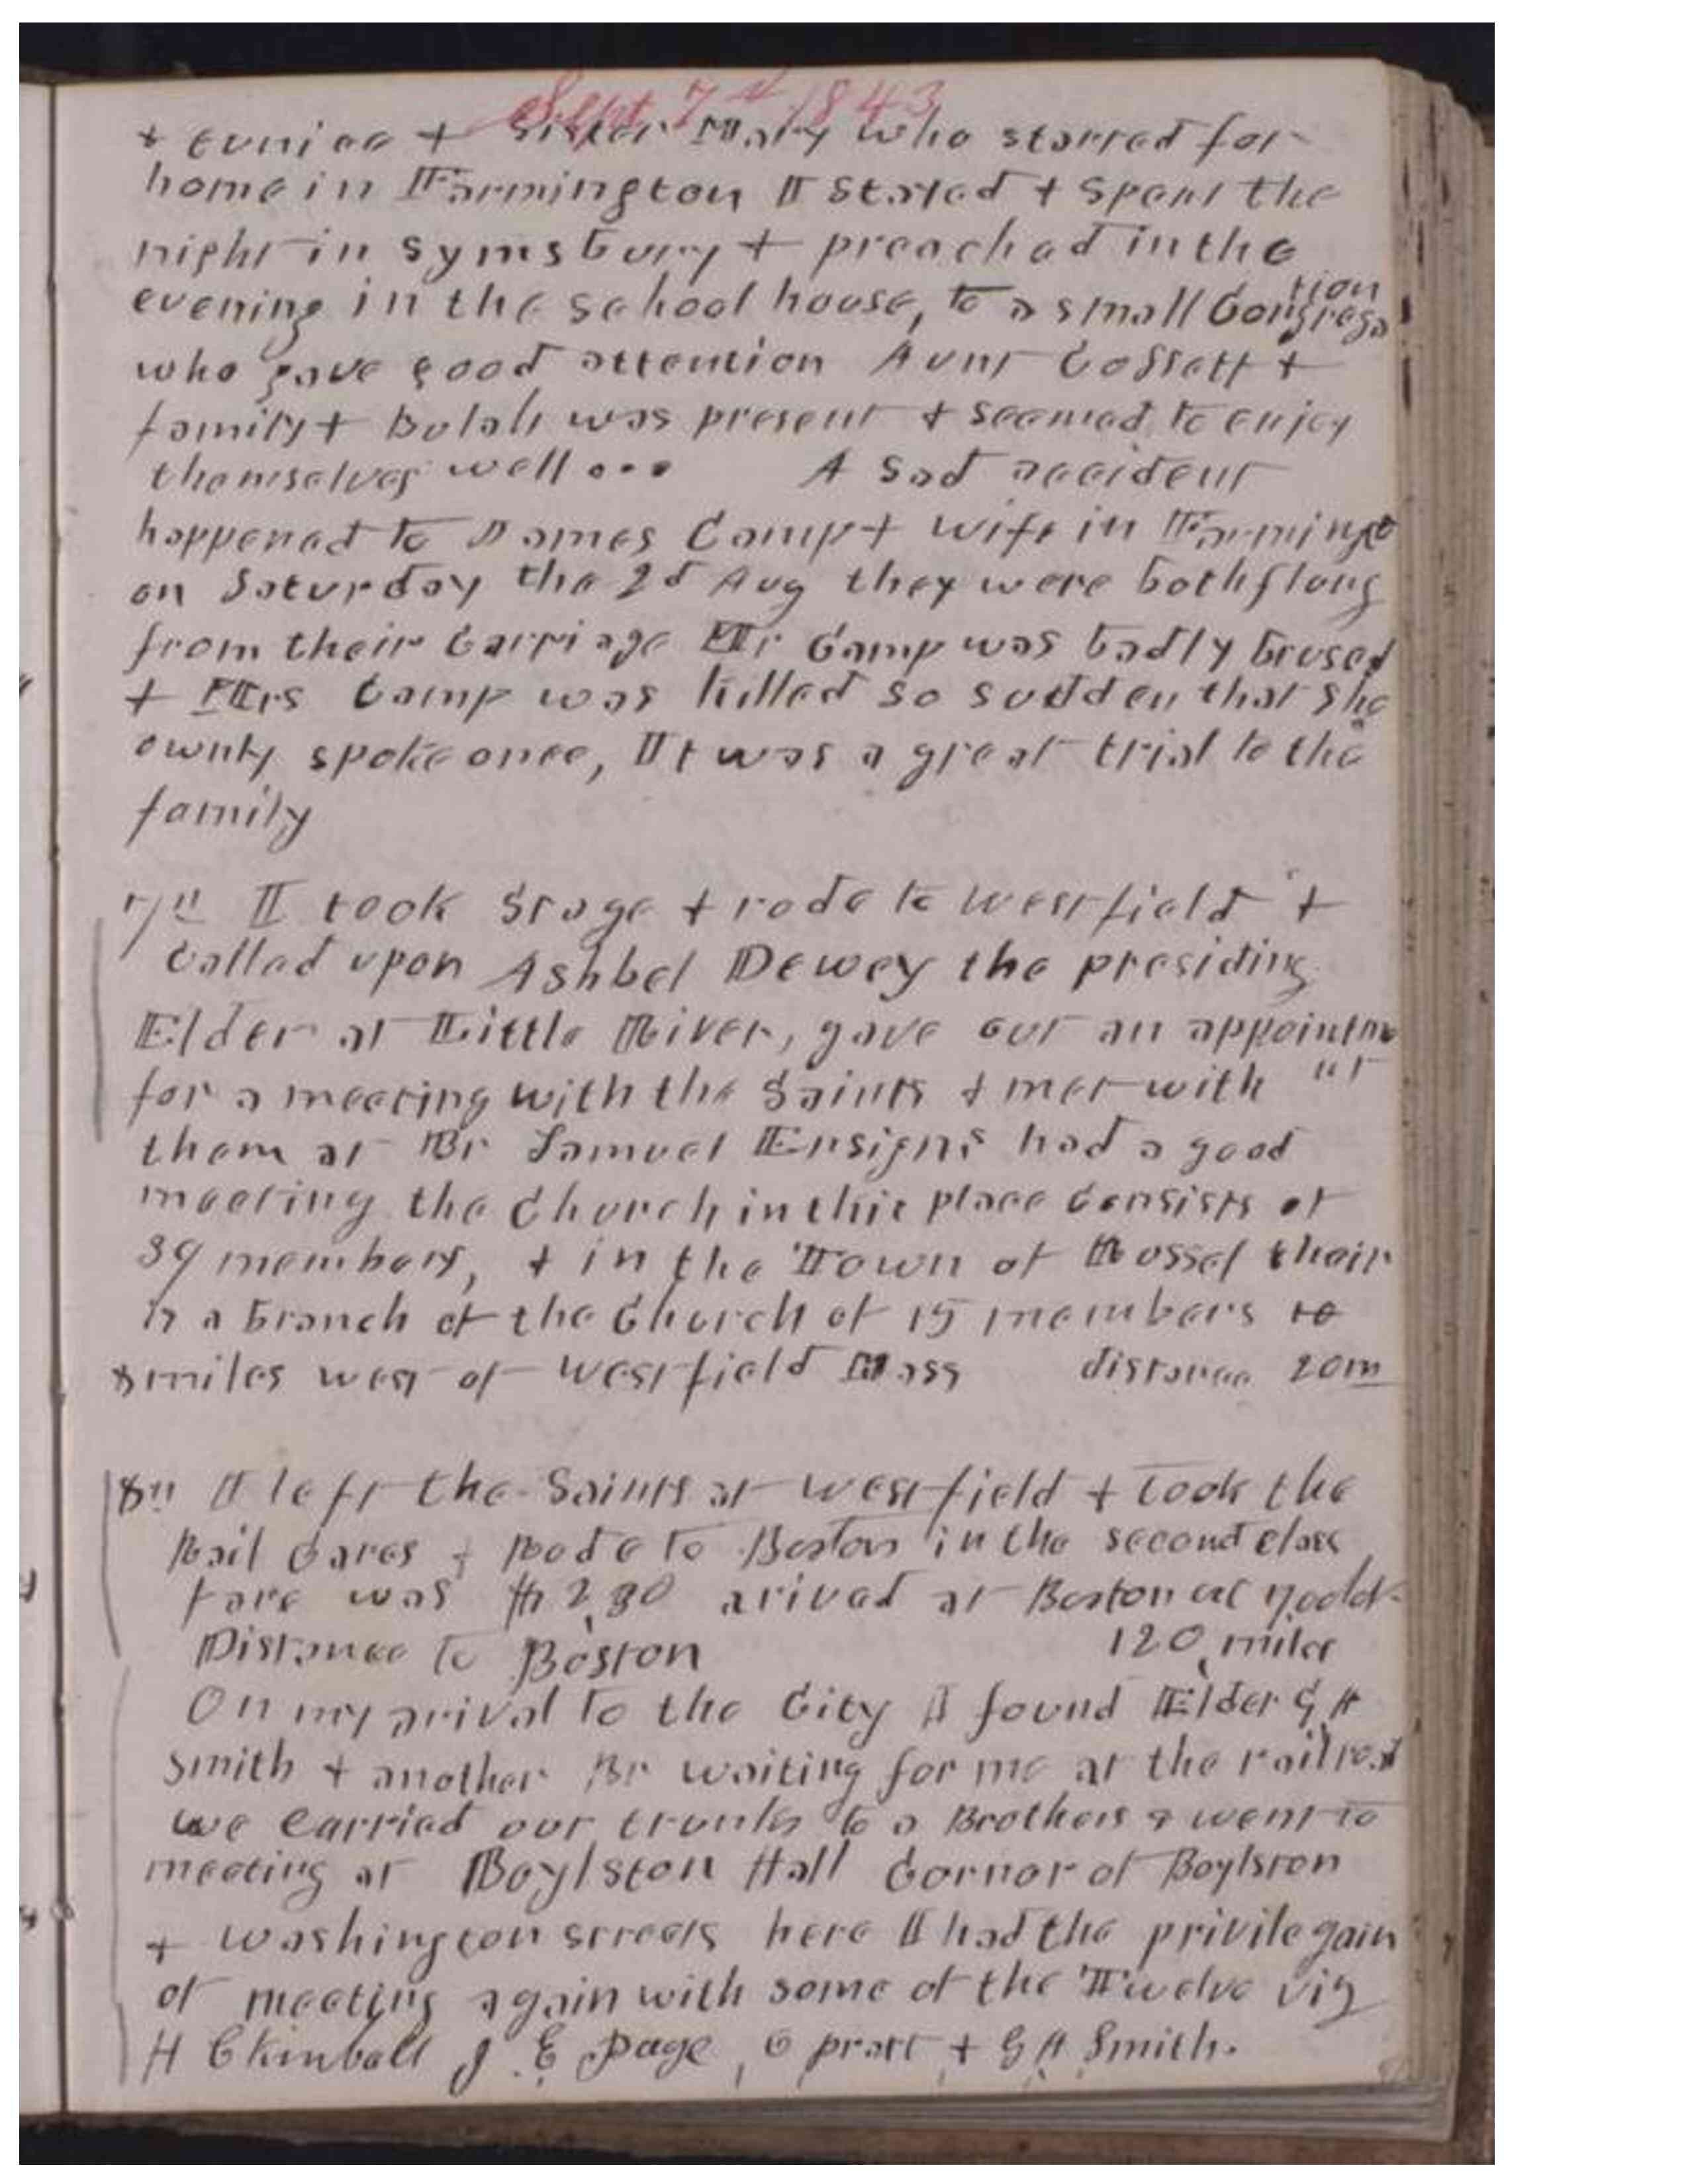 Sept 7th 1843
+ Eunice + Sister Mary who starred for
home in Farmington I stayed + spent the
night in Symsbury + preached in the
evening in the school house, to a small Congregation
who gave good attention Aunt Cossett +
family + Bulah was present + seemed to enjoy
themselves well ... A Sad accident
happened to James Camp + wife in Farmingt
on Saturday the 2d Aug they were both flong
from their Carriage Mr Camp was badly brused
+ Mrs Camp was killed so sudden that she
ownly spoke once, It was a great trial to the
family
7th I took Stage + rode to Westfield +
Called upon Ashbel Dewey the presiding
Elder at Little River, gave out an appointment
for a meeting with the Saints + met with
them at Br Samuel Ensigns had a good
meeting the Church in this place Consists of
39 members, + in the Town of Russel their
is a branch of the Church of 15 members
8 miles west of Westfield Mass distance 20m
8th I left the Saints at Westfield + took the
Rail Cares + Rode to Boston in the second class
fare was $2,80 arived at Boston at
Distance to Boston 120 miles
On my arival to the City I found Elder G A
Smith + another Br waiting for me at the railroad
we Carried our trunks to a Brothers & went to
meeting at Boylston Hall Cornor of Boylston
+ Washington streets here I had the privilegain
of meeting again with some of the Twelve viz
H C Kimball J E Page, O pratt + G A Smith.